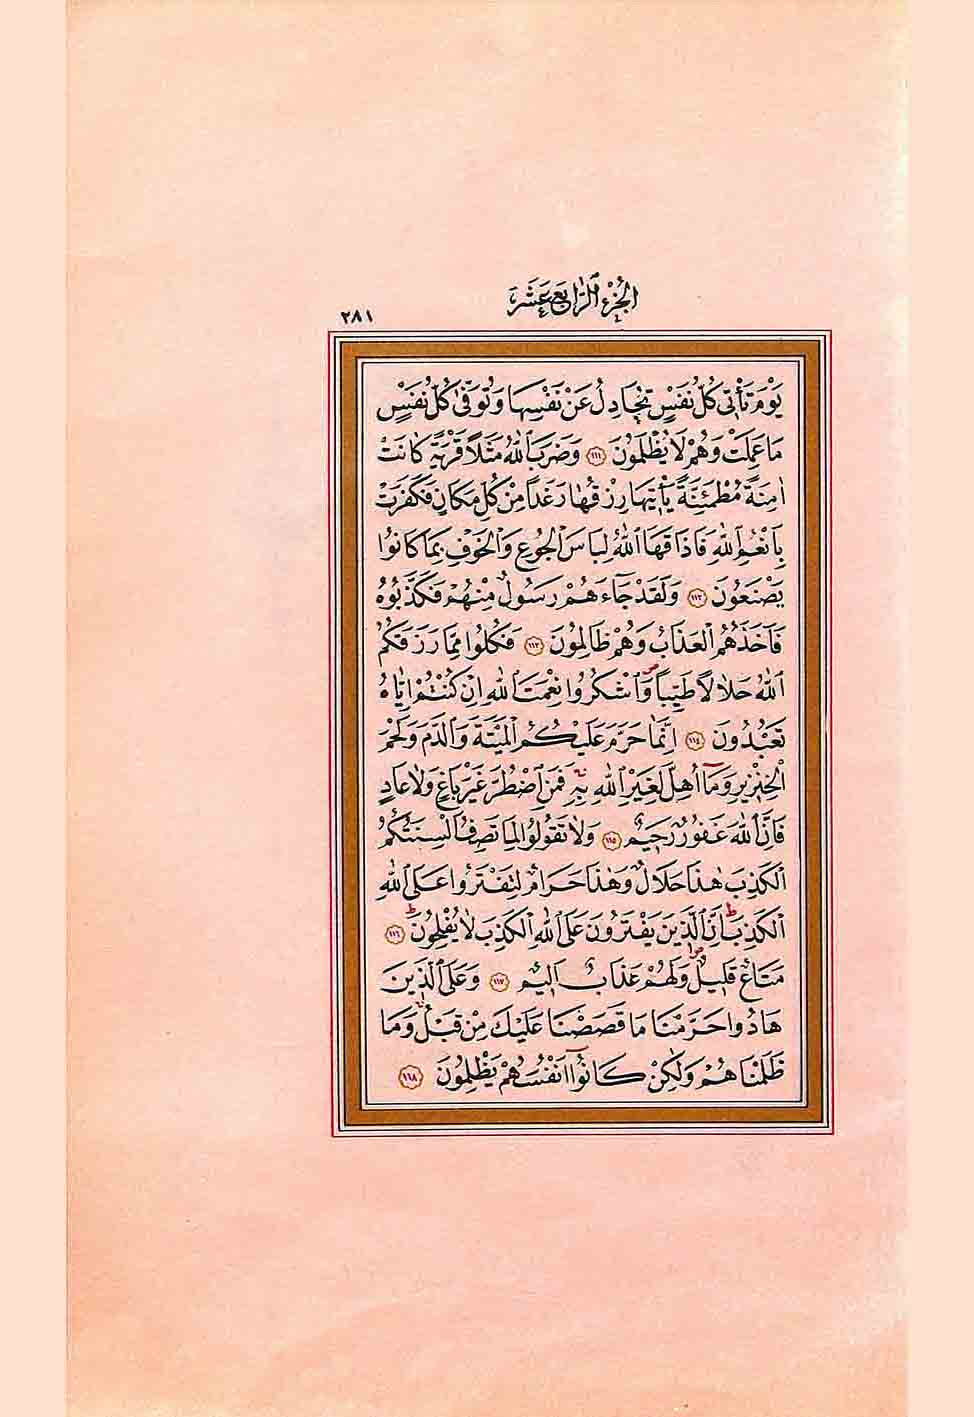 الجزء الرابع عشر
٢٨١
يَوْمَ تَأْتِي كُلُّ نَفْسٍ تُجَادِلُ عَنْ نَفْسِهَا وَتُوَفّٰى كُلُّ نَفْسٍ
مَا عَمِلَتْ وَهُمْ لَا يُظْلَمُونَ ۝١١١ وَضَرَبَ اللّٰهُ مَثَلًا قَرْيَةً كَانَتْ
اٰمِنَةً مُطْمَئِنَّةً يَأْتِيهَا رِزْقُهَا رَغَدًا مِنْ كُلِّ مَكَانٍ فَكَفَرَتْ
بِاَنْعُمِ اللّٰهِ فَاَذَاقَهَا اللّٰهُ لِبَاسَ الْجُوعِ وَالْخَوْفِ بِمَا كَانُوا
يَصْنَعُونَ ۝١١٢ وَلَقَدْ جَٓاءَهُمْ رَسُولٌ مِنْهُمْ فَكَذَّبُوهُ
فَاَخَذَهُمُ الْعَذَابُ وَهُمْ ظَالِمُونَ ۝١١٣ فَكُلُوا مِمَّا رَزَقَكُمُ
اللّٰهُ حَلَالًا طَيِّبًا وَاشْكُرُوا نِعْمَتَ اللّٰهِ اِنْ كُنْتُمْ اِيَّاهُ
تَعْبُدُونَ ۝١١٤ اِنَّمَا حَرَّمَ عَلَيْكُمُ الْمَيْتَةَ وَالدَّمَ وَلَحْمَ
الْخِنْزِيرِ وَمَٓا اُهِلَّ لِغَيْرِ اللّٰهِ بِهِ فَمَنِ اضْطُرَّ غَيْرَ بَاغٍ وَلَا عَادٍ
فَاِنَّ اللّٰهَ غَفُورٌ رَحِيمٌ ۝١١٥ وَلَا تَقُولُوا لِمَا تَصِفُ اَلْسِنَتُكُمُ
الْكَذِبَ هٰذَا حَلَالٌ وَهٰذَا حَرَامٌ لِتَفْتَرُوا عَلَى اللّٰهِ
الْكَذِبَ اِنَّ الَّذِينَ يَفْتَرُونَ عَلَى اللّٰهِ الْكَذِبَ لَا يُفْلِحُونَ ۝١١٦
مَتَاعٌ قَلِيلٌ وَلَهُمْ عَذَابٌ اَلِيمٌ ۝١١٧ وَعَلَى الَّذِينَ
هَادُوا حَرَّمْنَا مَا قَصَصْنَا عَلَيْكَ مِنْ قَبْلُ وَمَا
ظَلَمْنَاهُمْ وَلٰكِنْ كَانُٓوا اَنْفُسَهُمْ يَظْلِمُونَ ۝١١٨